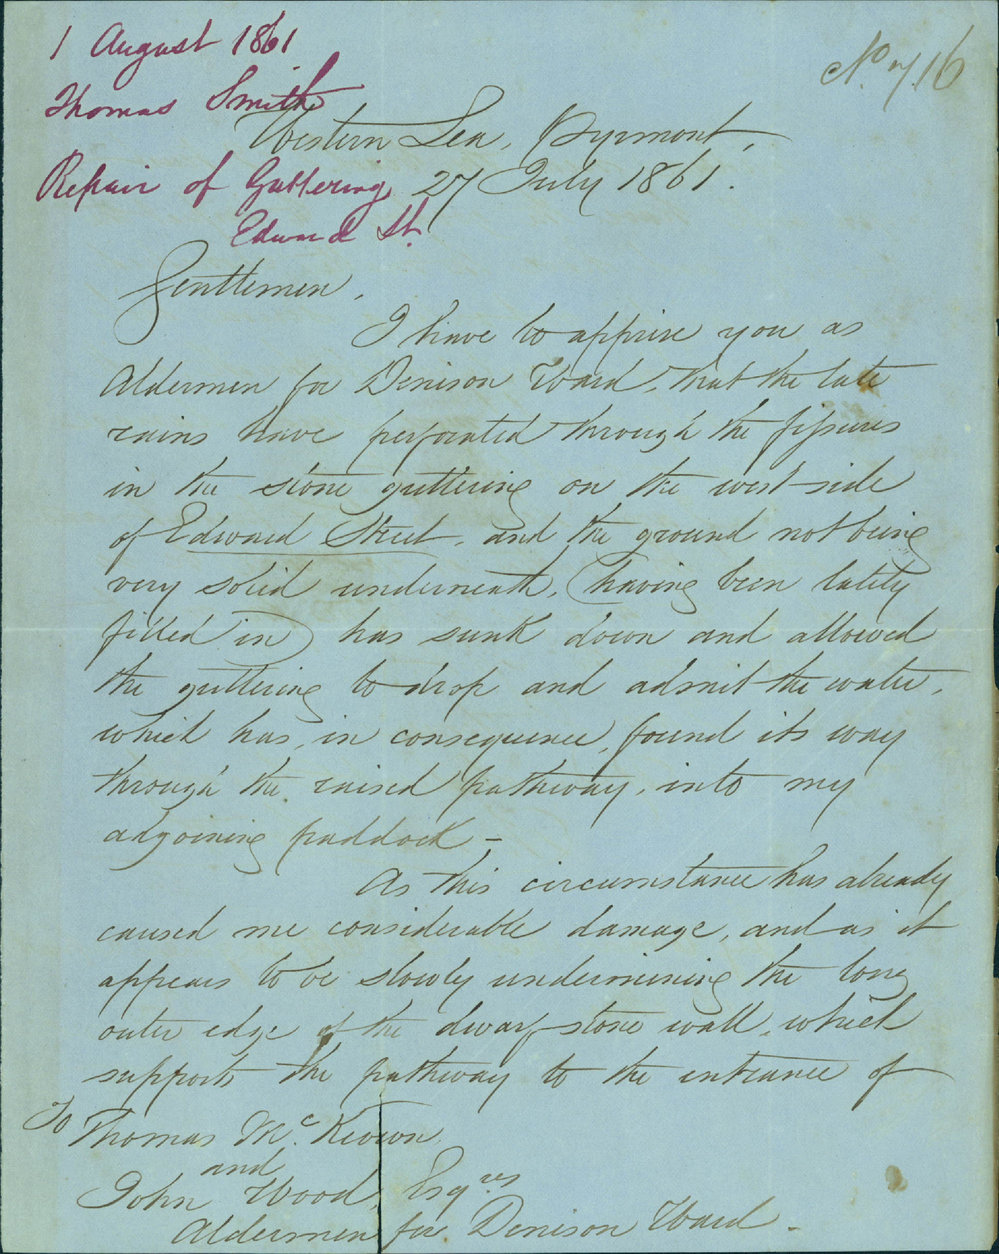 1 August 1861
No 716
Thomas Smith
Western Lea, Pyrmont,
Repair of Guttering
27 July 1861.
Edward St.
Gentlemen,
I have to apprise you as
Aldermen for Denison Ward, that the late
rains have perforated through the fissures
in the stone guttering on the west side
of Edward Street, and the ground not being
very solid underneath, (having been lately
filled in) has sunk down and allowed
the guttering to drop and admit the water,
which has, in consequence, found its way
through the raised pathway, into my
adjoining paddock -
As this circumstance has already
caused me considerable damage, and as it
appears to be slowly undermining the long
outer edge of the dwarf stone wall, which
supports the pathway to the entrance of
To Thomas McKeown
and
John Wood, Esqres
Aldermen for Denison Ward -